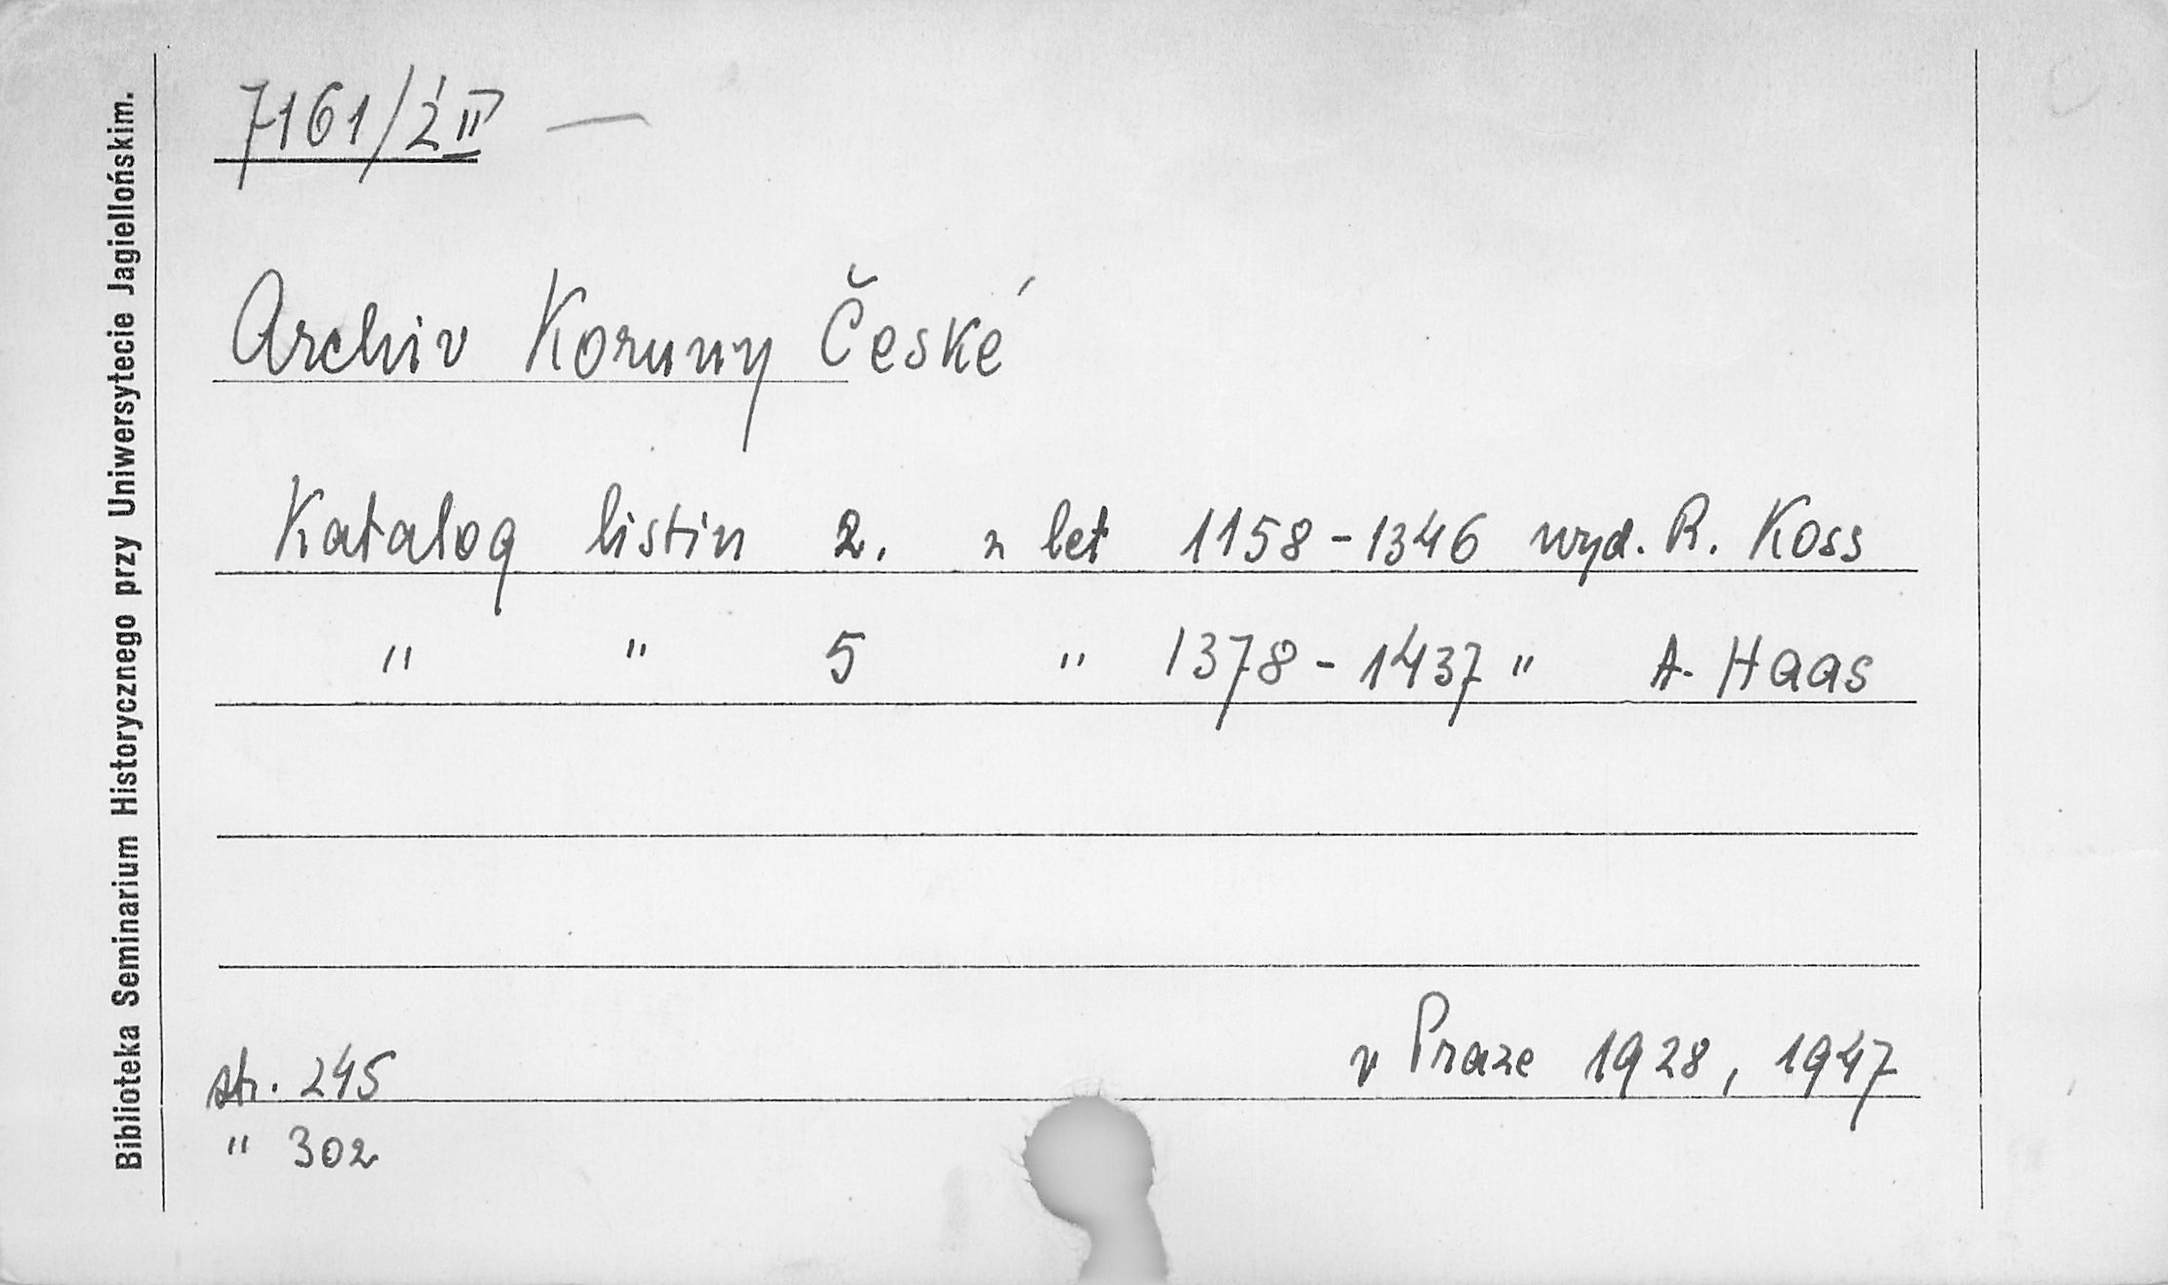 Biblioteka Seminarium Historycznego przy Uniwersytecie Jagiellońskim.
7161/ II —
Archiv Koruny České
Katalog listin 2. z let 1158-1346 wyd. R. Koss
" " 5 " 1378-1437 " A. Haas
v Praze 1928, 1947
str. 245
" 302